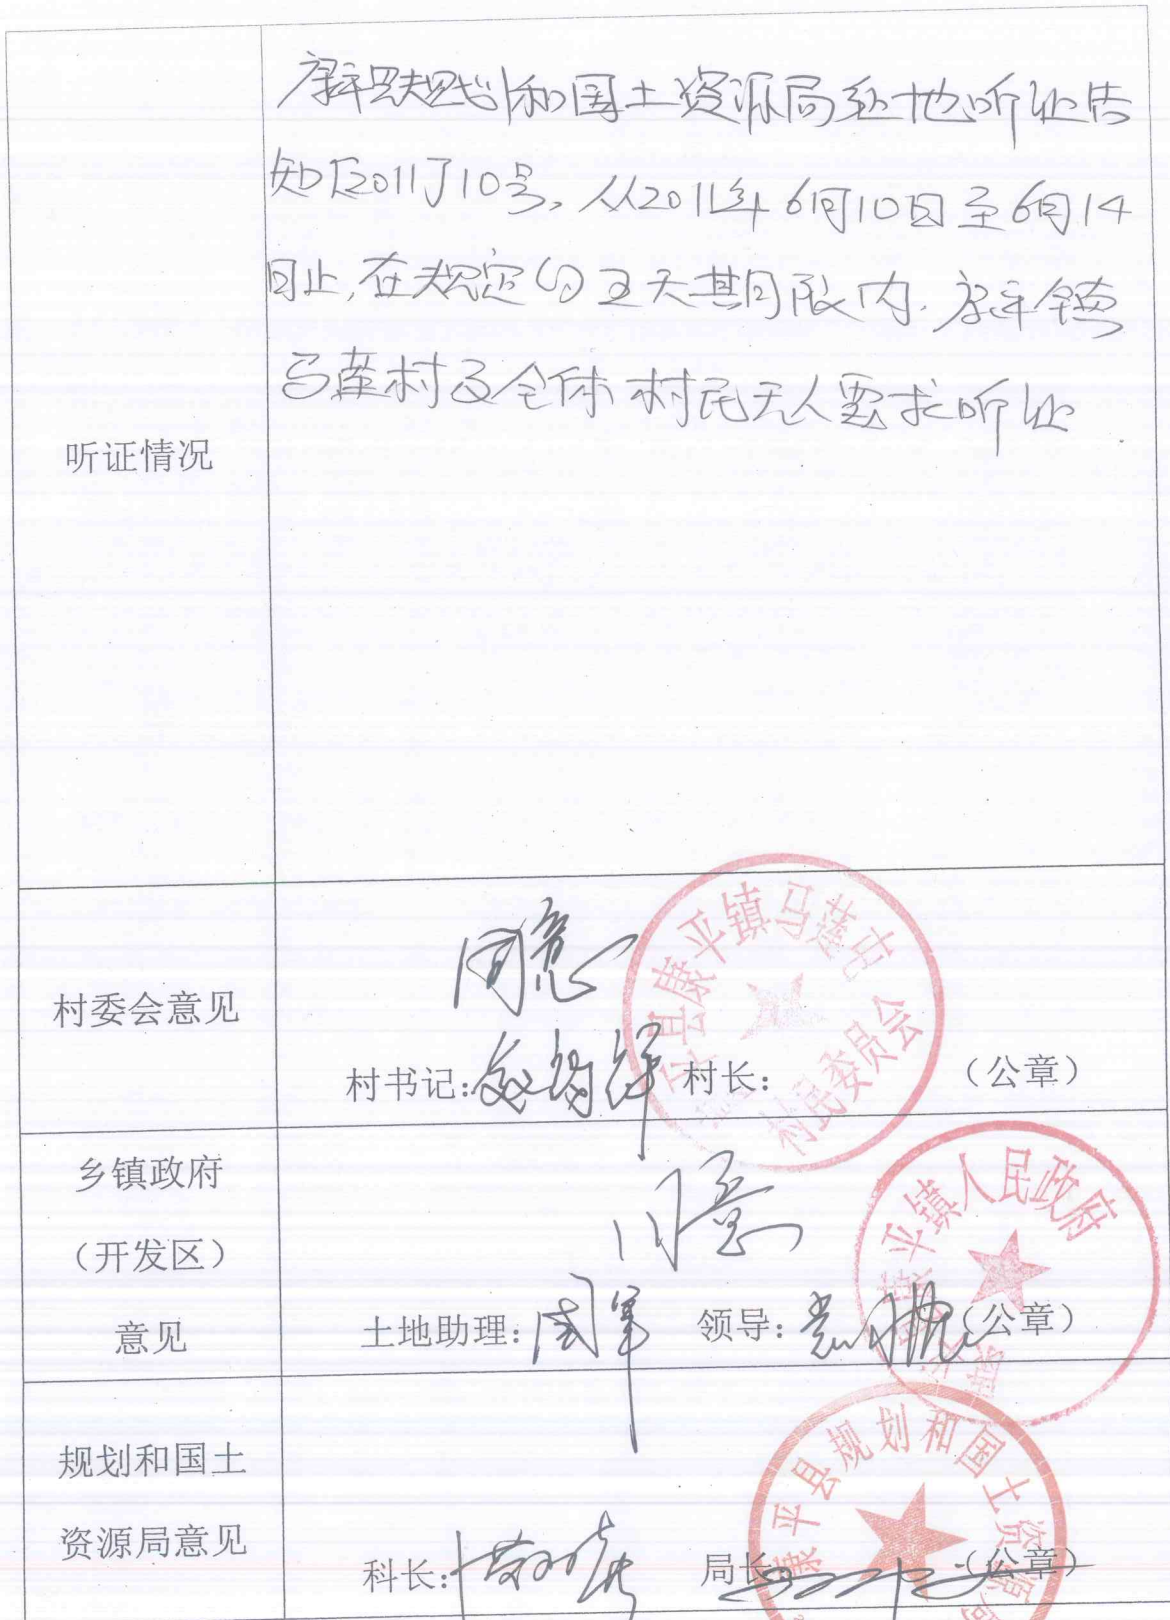 康平县规划和国土资源局征地听证告
知〔2011〕10号。从2011年6月10日至6月14
日止,在规定的五天期限内.康平镇
马莲村及全体村民无人要求听证
听证情况
村委会意见
同意
村书记: 村长: （公章）
平县康平镇马莲屯
村民委员会
乡镇政府
（开发区）
意见
同意
土地助理: 领导: （公章）
康平镇人民政府
规划和国土
资源局意见
科长: 局长: （公章）
康平县规划和国土资源局